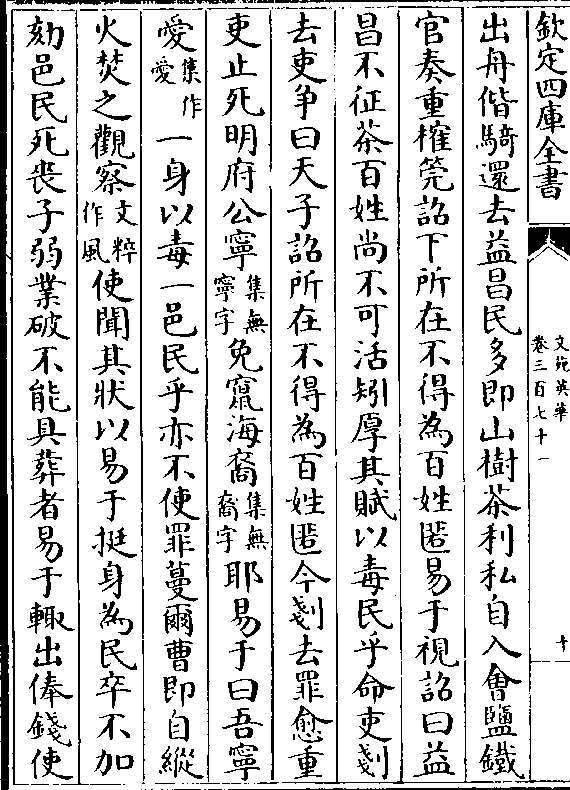 欽定四庫全書
文苑英華
卷三百七十一
十
出舟偕騎還去益昌民多即山樹茶利私自入會鹽鐵
官奏重榷筦詔下所在不得為百姓匿易于視詔曰益
昌不征茶百姓尚不可活矧厚其賦以毒民乎命吏剗
去吏争曰天子詔所在不得為百姓匿今剗去罪愈重
吏止死明府公寧集無寧字免竄海裔集無裔字耶易于曰吾寧
愛集作愛一身以毒一邑民乎亦不使罪蔓爾曹即自縱
火焚之觀察文粹作風使聞其狀以易于挺身為民卒不加
劾邑民死喪子弱業破不能具葬者易于輙出俸錢使